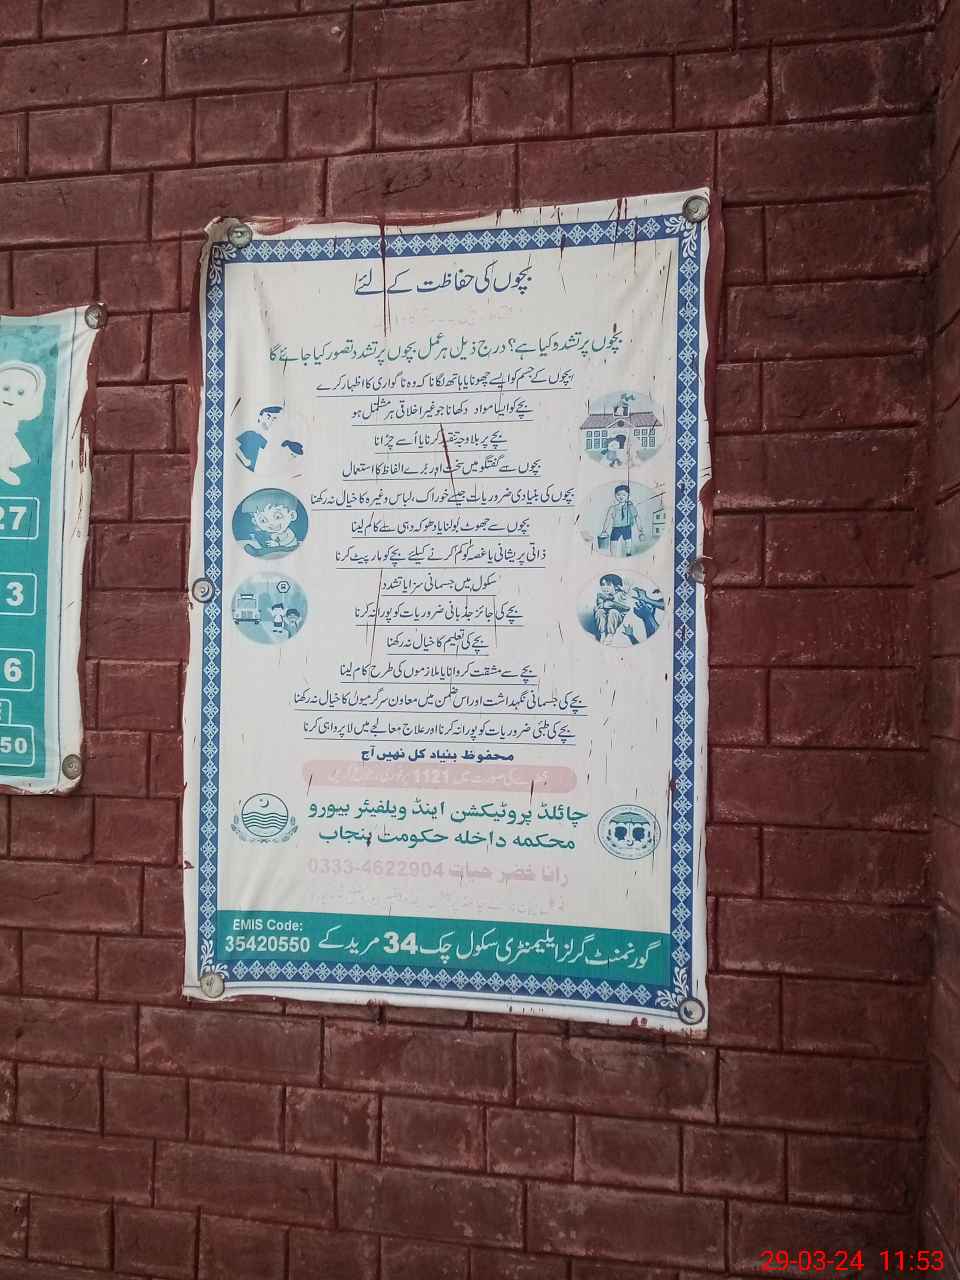 بچوں کی حفاظت کے لئے
بچوں پر تشدد کیا ہے؟ درج ذیل ہر عمل بچوں پر تشدد تصور کیا جائے گا
بچوں کے جسم کو ایسے چھونا یا ہاتھ لگانا کہ وہ ناگواری کا اظہار کرے
بچے کو ایسا مواد دکھانا جو غیر اخلاقی ہر مشتمل ہو
بچے پر بلاوجہ تنقید کرنا یا اُسے چڑانا
بچوں سے گفتگو میں سخت اور بُرے الفاظ کا استعمال
بچوں کی بنیادی ضروریات جیسے خوراک، لباس وغیرہ کا خیال نہ رکھنا
بچوں سے جھوٹ بولنا یا دھوکہ دہی سے کام لینا
ذاتی پریشانی یا غصہ کو کم کرنے کیلئے بچے کو مار پیٹ کرنا
سکول میں جسمانی سزا یا تشدد
بچے کی جائز جذباتی ضروریات کو پورا نہ کرنا
بچے کی تعلیم کا خیال نہ رکھنا
بچے سے مشقت کروانا یا ملازموں کی طرح کام لینا
بچے کی جسمانی نگہداشت اور اس ضمن میں معاون سرگرمیوں کا خیال نہ رکھنا
بچے کی طبّی ضروریات کو پورا نہ کرنا اور علاج معالجے میں لاپرواہی کرنا
محفوظ بنیاد کل نہیں آج
صورت میں 1121 پر
چائلڈ پروٹیکشن اینڈ ویلفیئر بیورو
محکمہ داخلہ حکومت پنجاب
رانا خضر حیات 0333-4622904
گورنمنٹ گرلز ایلیمنٹری سکول چک 34 مریدکے
EMIS Code:
35420550
27
3
6
50
29-03-24 11:53